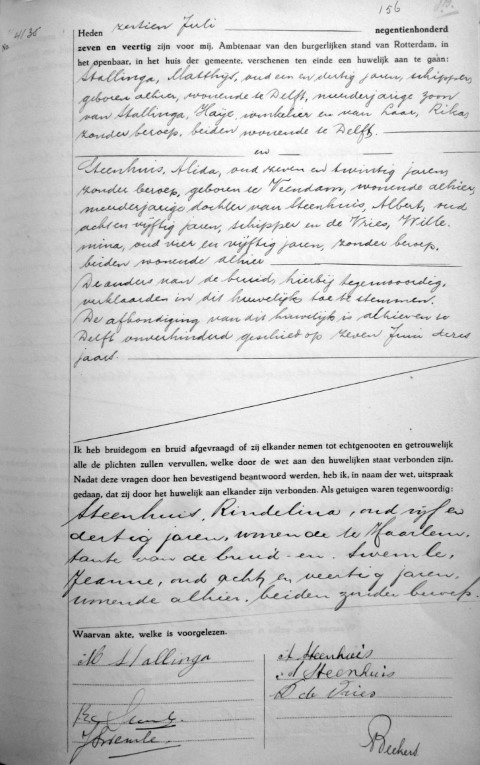 156
4136
Heden zestien Juli negentienhonderd
zeven en veertig zijn voor mij, Ambtenaar van den burgerlijken stand van Rotterdam, in
het openbaar, in het huis der gemeente, verschenen ten einde een huwelijk aan te gaan:
Stallinga, Matthijs, oud een en dertig jaren, schipper,
geboren alhier, wonende te Delft, meerderjarige zoon
van Stallinga, Haije, winkelier en van Laar, Rika,
zonder beroep, beiden wonende te Delft.
en
Steenhuis, Alida, oud zeven en twintig jaren,
zonder beroep, geboren te Veendam, wonende alhier,
meerderjarige dochter van Steenhuis, Albert, oud
acht en vijftig jaren, schipper en de Vries, Wille
mina, oud vier en vijftig jaren, zonder beroep,
beiden wonende alhier
De ouders van de bruid, hierbij tegenwoordig,
verklaarden in dit huwelijk toe te stemmen.
De afkondiging van dit huwelijk is alhier en te
Delft onverhinderd geschied op zeven Juni dezes
jaars.
Ik heb bruidegom en bruid afgevraagd of zij elkander nemen tot echtgenooten en getrouwelijk
alle de plichten zullen vervullen, welke door de wet aan den huwelijken staat verbonden zijn.
Nadat deze vragen door hen bevestigend beantwoord werden, heb ik, in naam der wet, uitspraak
gedaan, dat zij door het huwelijk aan elkander zijn verbonden. Als getuigen waren tegenwoordig:
Steenhuis, Rindelina, oud vijf en
dertig jaren, wonende te Haarlem,
tante van de bruid en Swemle,
Jeanne, oud acht en veertig jaren,
wonende alhier, beiden zonder beroep.
Waarvan akte, welke is voorgelezen.
M Stallinga
A Steenhuis
A Steenhuis
de Vries
Beekers